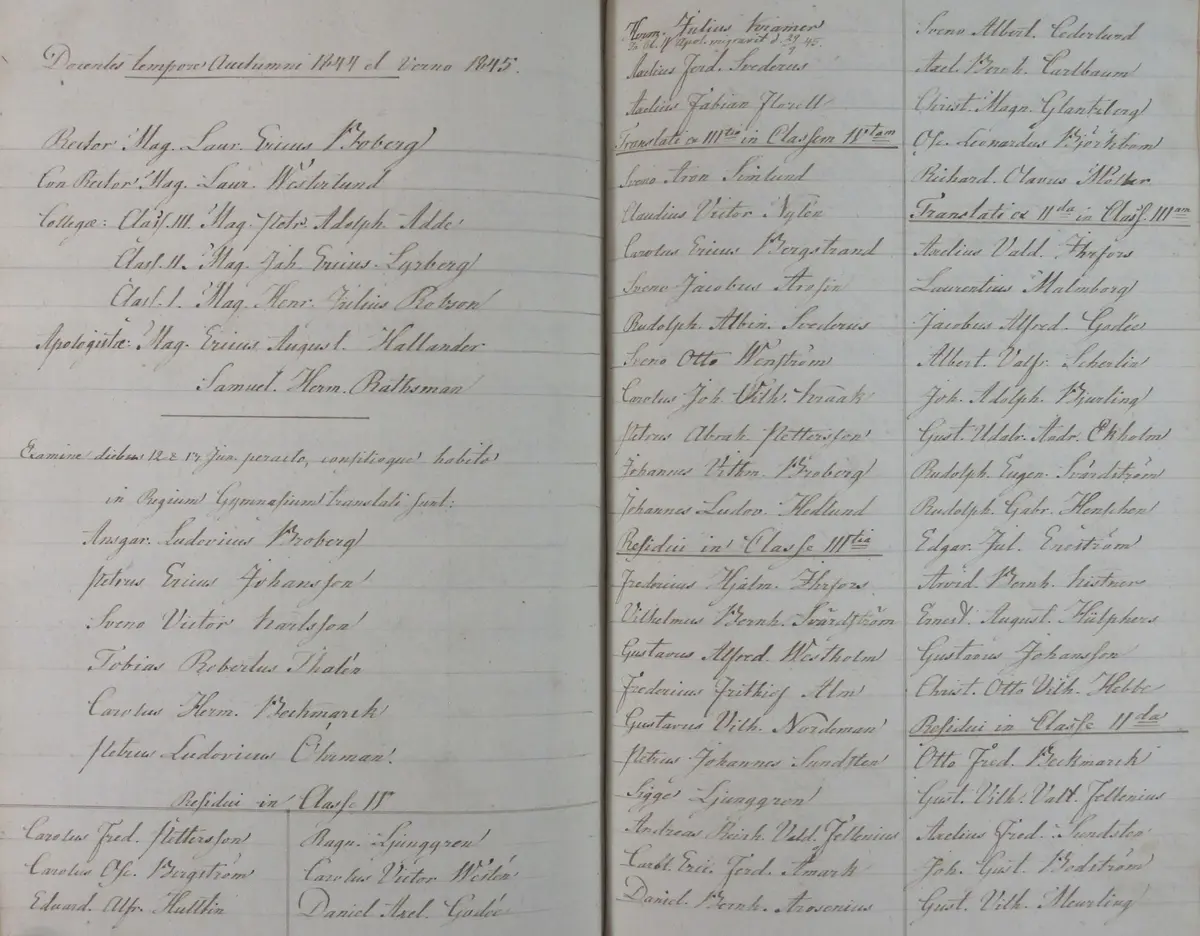 Docentes tempore Autumni 1844 et Verno 1845.
Rector Mag. Laur. Ericus Broberg
Con Rector Mag. Laur. Westerlund
Collegæ: Class. III. Mag. Petr. Adolph Adde
Class. II. Mag. Joh. Ericus Lyrberg
Class. I. Mag. Henr. Julius Robson
Apologistæ: Mag. Ericus August. Hallander
Samuel. Herm. Rathsman
Examine diebus 12 & 13 Jun. peracto, consilioque habito
in Regium Gymnasium translati sunt:
Ansgar. Ludovicus Broberg
Petrus Ericus Johansson
Sveno Victor Karlsson
Tobias Robertus Thalén
Carolus Herm. Beckmarck
Petrus Ludovicus Öhrman.
Residui in Classe IV
Carolus Fred. Pettersson
Carolus Osc. Bergström
Eduard. Alfr. Hultbin
Ragn. Ljunggren
Carolus Victor Weslén
Daniel Axel. Godée
Herm. Julius Kramer
Apol. migravit d. 29/9 45.
Aurelius Ferd. Svederus
Axelius Fabian Florell
Translati ex IIItia in Classem IVtam
Sveno Aron Simlund
Claudius Victor Nylén
Carolus Ericus Bergstrand
Sveno Jacobus Arosin
Rudolph. Albin. Svederus
Sveno Otto Wenström
Carolus Joh. Vilh. Kraak
Petrus Abrah. Pettersson
Johannes Vilhm. Broberg
Johannes Ludov. Hedlund
Residui in Classe IIItia
Fredericus Hjalm. Ihrfors
Vilhelmus Bernh. Svärdström
Gustavus Alfred. Westholm
Fredericus Frithiof Alm
Gustavus Vilh. Nordeman
Petrus Johannes Sundsten
Sigge Ljunggren
Andreas Vald. Jellenius
Carol. Eric. Ferd. Amark
Daniel. Bernh. Arosenius
Sveno Albert. Cederlund
Axel. Bernh. Carlbaum
Christ. Magn. Glantzberg
Osc. Leonardus Björkbom
Richard. Olavus Möller
Translati ex IIda in Class. IIIam
Axelius Vald. Ihrfors
Laurentius Malmborg
Jacobus Alfred. Godée
Albert. Valfr. Scherlin
Joh. Adolph. Bjurling
Gust. Udalr. Andr. Ekholm
Rudolph. Eugen. Svärdström
Rudolph. Gabr. Henschen
Edgar. Jul. Eneström
Arvid. Bernh. Kistner
Ernest. August. Hülphers
Gustavus Johansson
Christ. Otto Vilh. Hebbe
Residui in Classe IIda
Otto Fred. Beckmarck
Gust. Vilh. Vald. Jellenius
Axelius Fred. Sundsten
Joh. Gust. Bodström
Gust. Vilh. Meurling